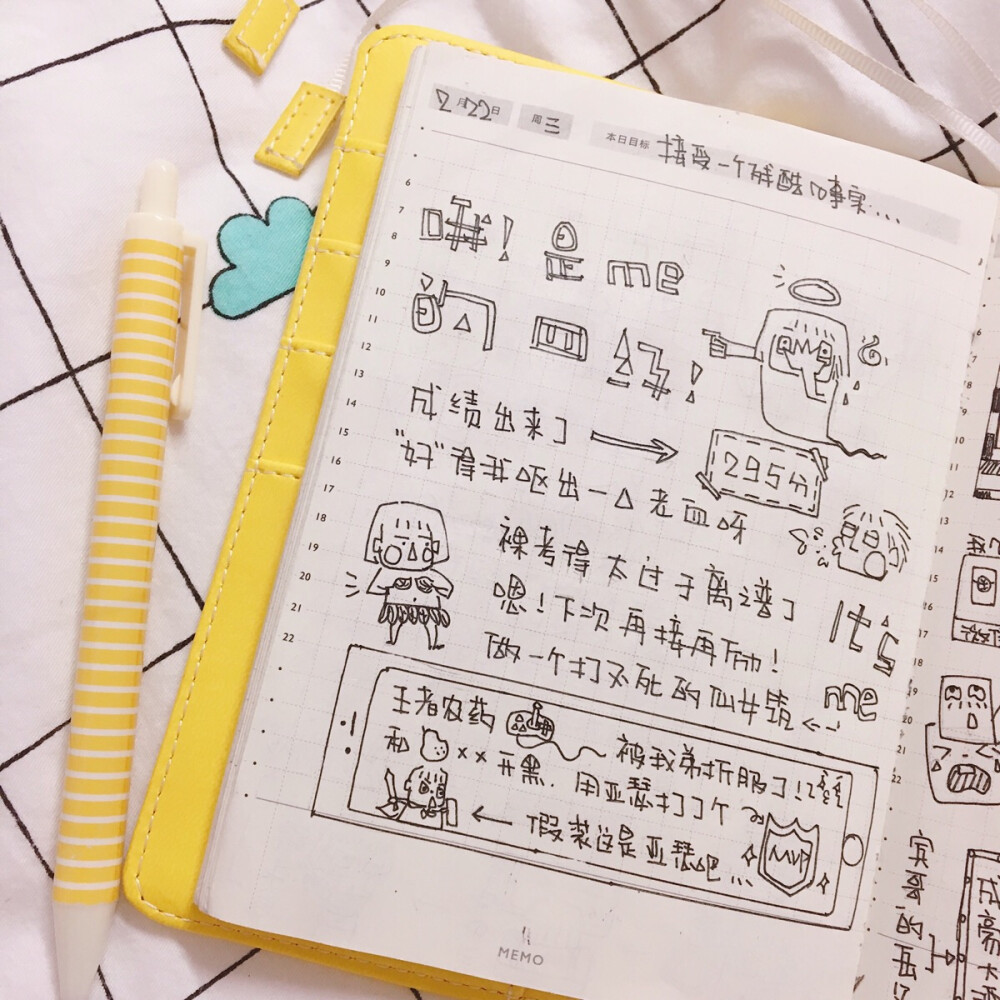 2月22日 周三 本日目标 接受一个残酷的事实...
6
7
8
9
10
11
12
13
14
15
16
17
18
19
20
21
22
啡! 是 me
的 四 好!
成绩出来了 → 295分
"好"得我呕出一口老血呀
裸考得太过于离谱了
嗯!下次再接再励!
做一个打不死的仙女婊 ←
It's me
王者农药 被我弟折服了!
和 xx 开黑. 用亚瑟打了个
← 假装这是亚瑟吧...
MVP
MEMO
宾哥的岳